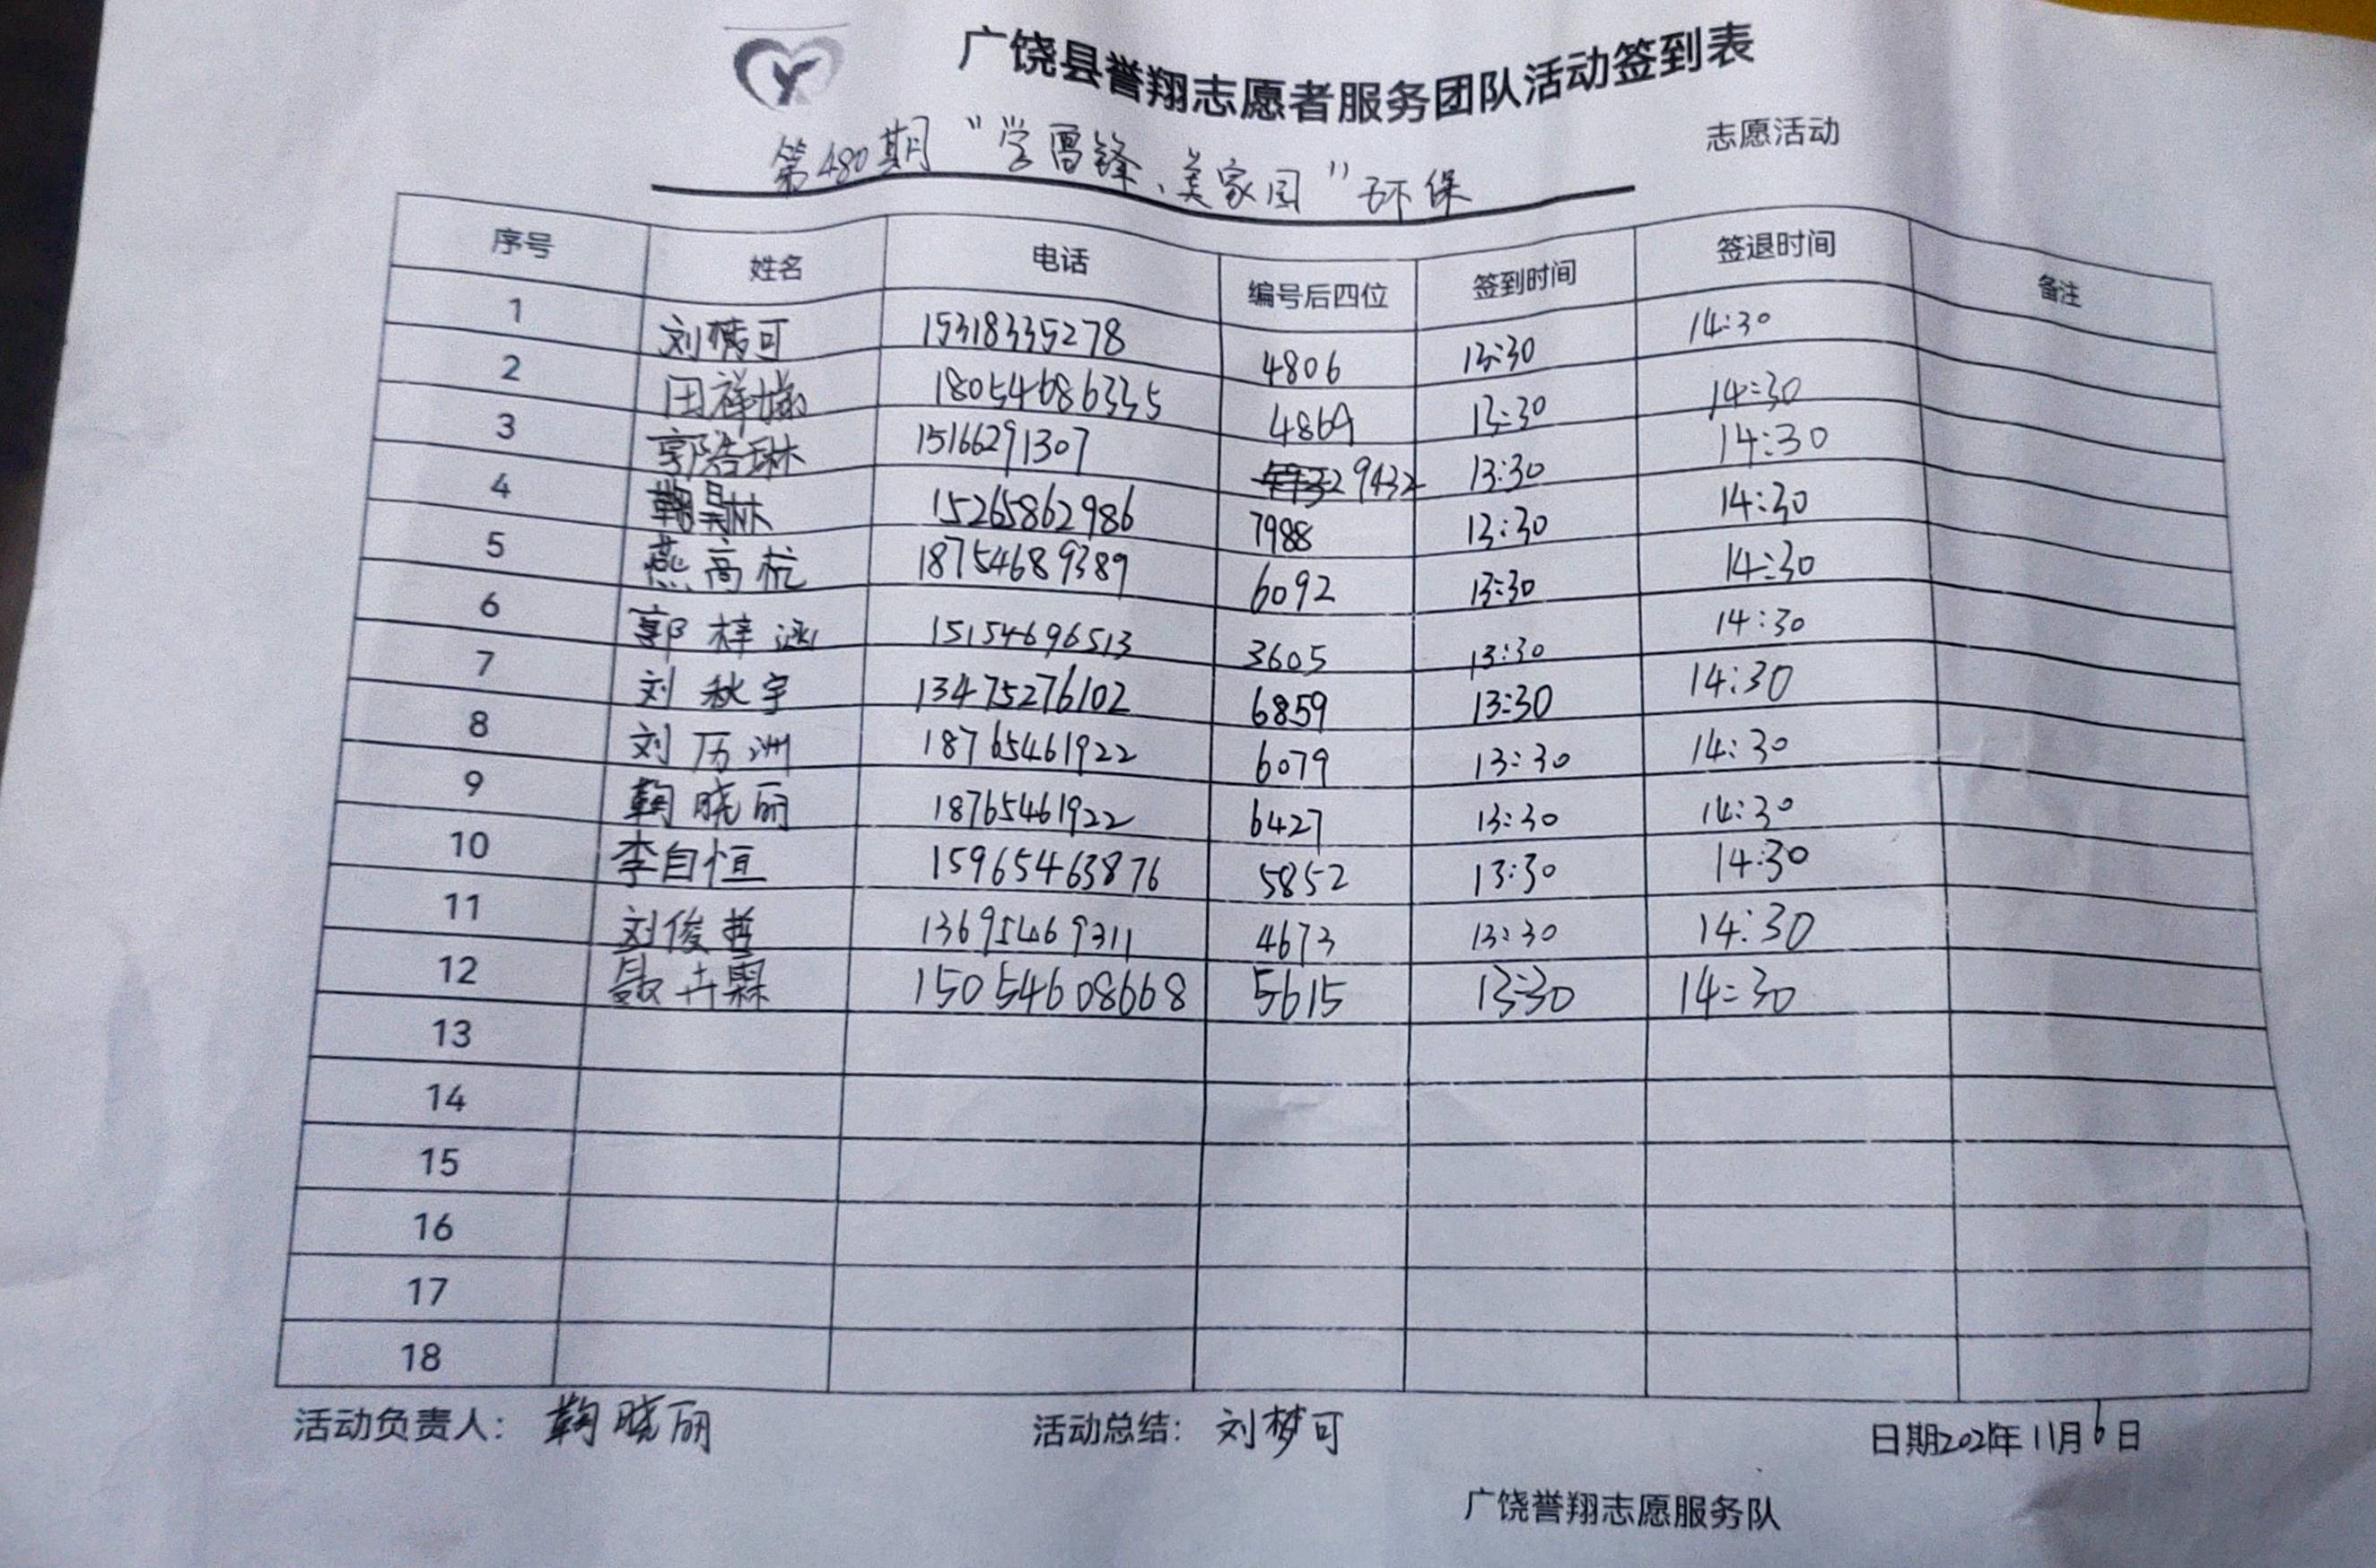 广饶县誉翔志愿者服务团队活动签到表
第480期“学雷锋、美家园”环保 志愿活动
序号 姓名 电话 编号后四位 签到时间 签退时间 备注
1 刘梦可 15318335278 4806 13:30 14:30
2 田祥 18054686335 4869 13:30 14:30
3 郭浩琳 15166291307 9432 13:30 14:30
4 鞠昊林 15265862986 7988 13:30 14:30
5 燕高杭 18754689389 6092 13:30 14:30
6 郭梓涵 15154696513 3605 13:30 14:30
7 刘秋宇 13475276102 6859 13:30 14:30
8 刘历洲 18765461922 6079 13:30 14:30
9 鞠晓丽 18765461922 6427 13:30 14:30
10 李自恒 15965463876 5852 13:30 14:30
11 刘俊哲 13695469311 4673 13:30 14:30
12 聂卉霖 15054608668 5615 13:30 14:30
13
14
15
16
17
18
活动负责人： 鞠晓丽 活动总结： 刘梦可 日期2021年11月6日
广饶誉翔志愿服务队